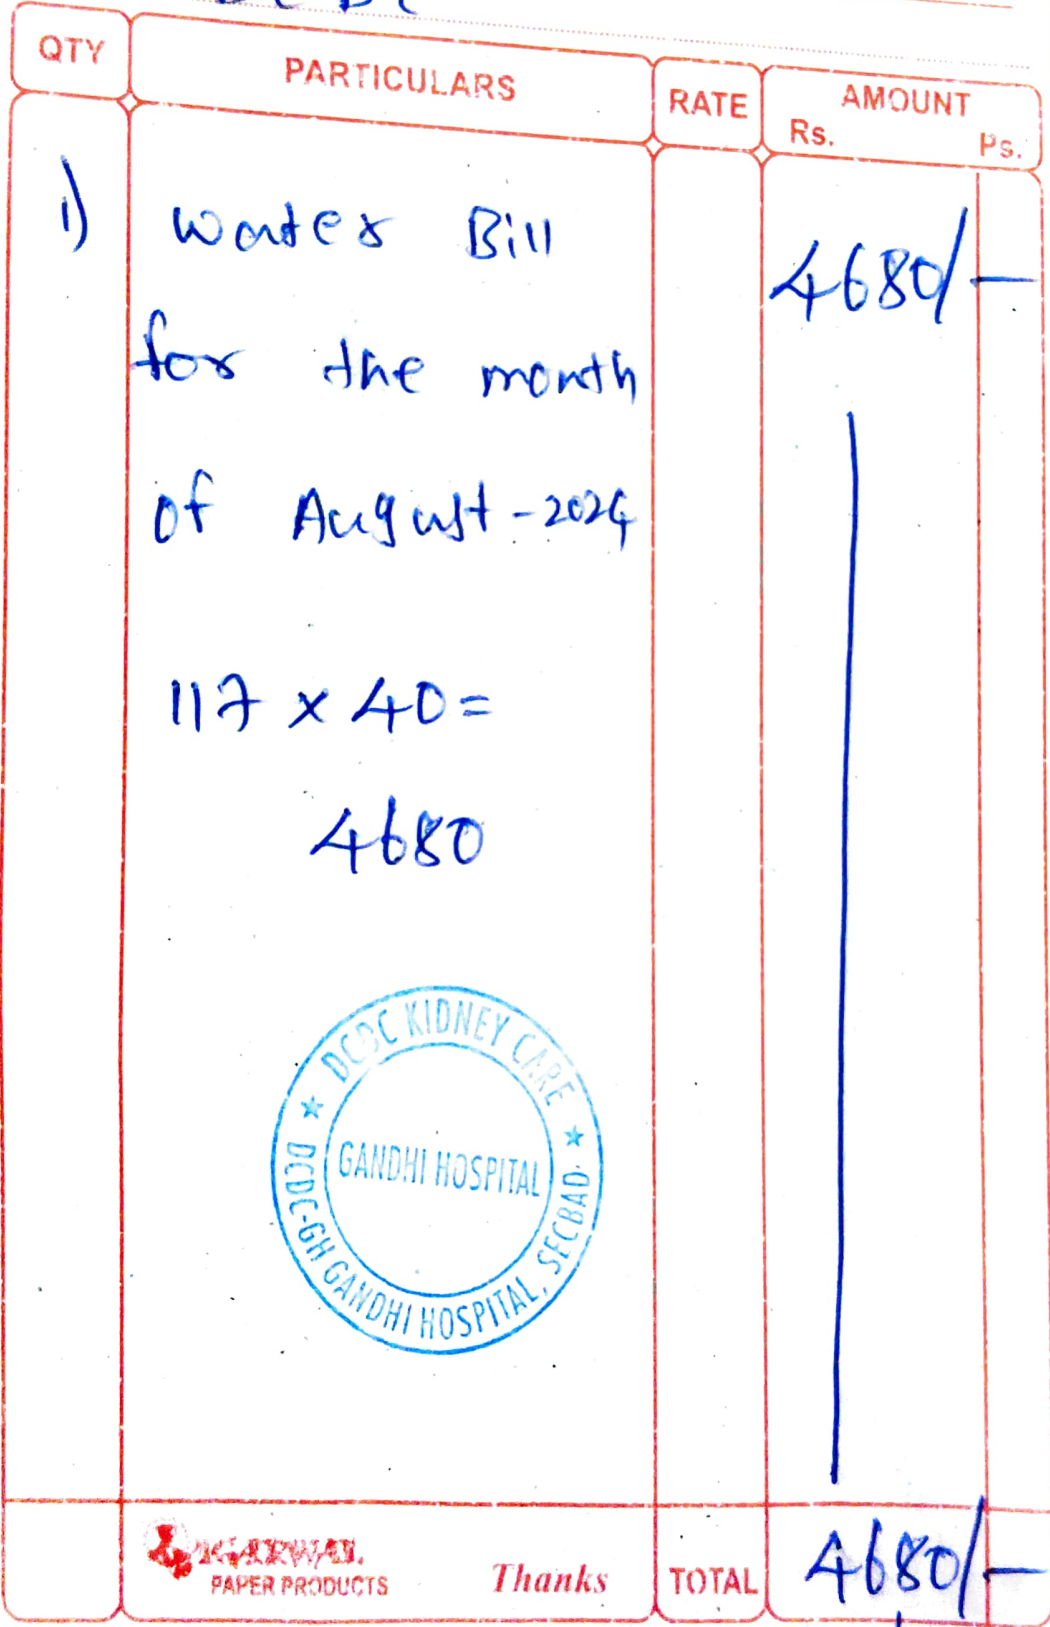 QTY PARTICULARS RATE AMOUNT
Rs. Ps.
1) Water Bill 4680/-
for the month
of August - 2024
117 x 40 =
4680
DCDC KIDNEY CARE
GANDHI HOSPITAL
DCDC-GH GANDHI HOSPITAL, SECBAD.
AGARWAL
PAPER PRODUCTS
Thanks TOTAL 4680/-